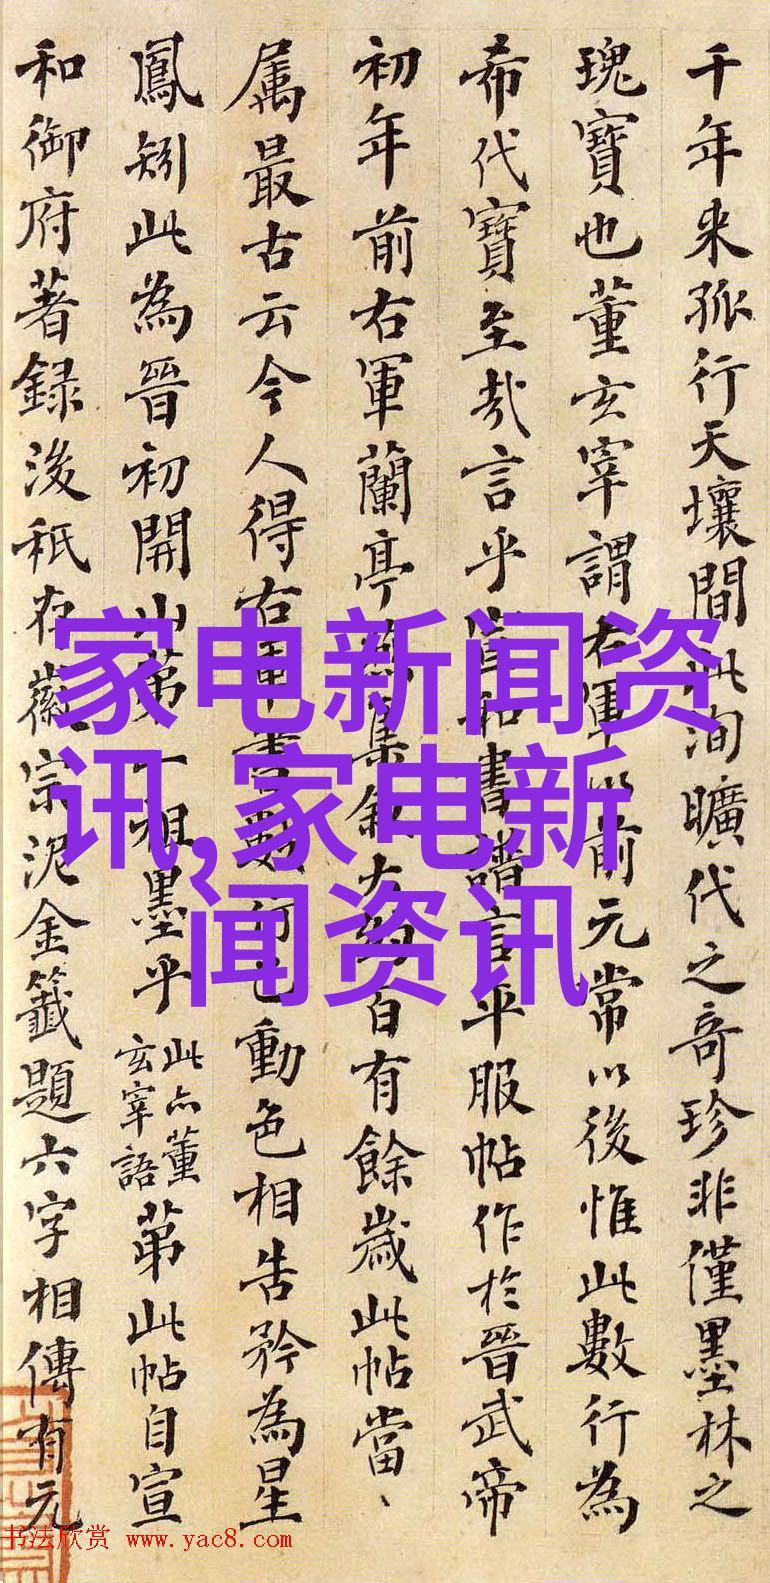 千年来孤行天壤間此洵曠代之奇珍非僅墨林之
瑰寶也董玄宰謂右軍以前元常以後惟此數行為
希代寶至哉言乎宣和書譜言平服帖作於晉武帝
初年前右軍蘭亭燕集敘大約百有餘歲此帖當、
属最古云今人得右軍書數行已動色相告矜為星
鳳矧此為晉初開山第一祖墨乎此亦董玄宰語第此帖自宣
和御府著録後秖存徽宗泥金籤題六字相傳有元
家电新闻资
讯,家电新
闻资讯
书法欣赏 www.yac8.com